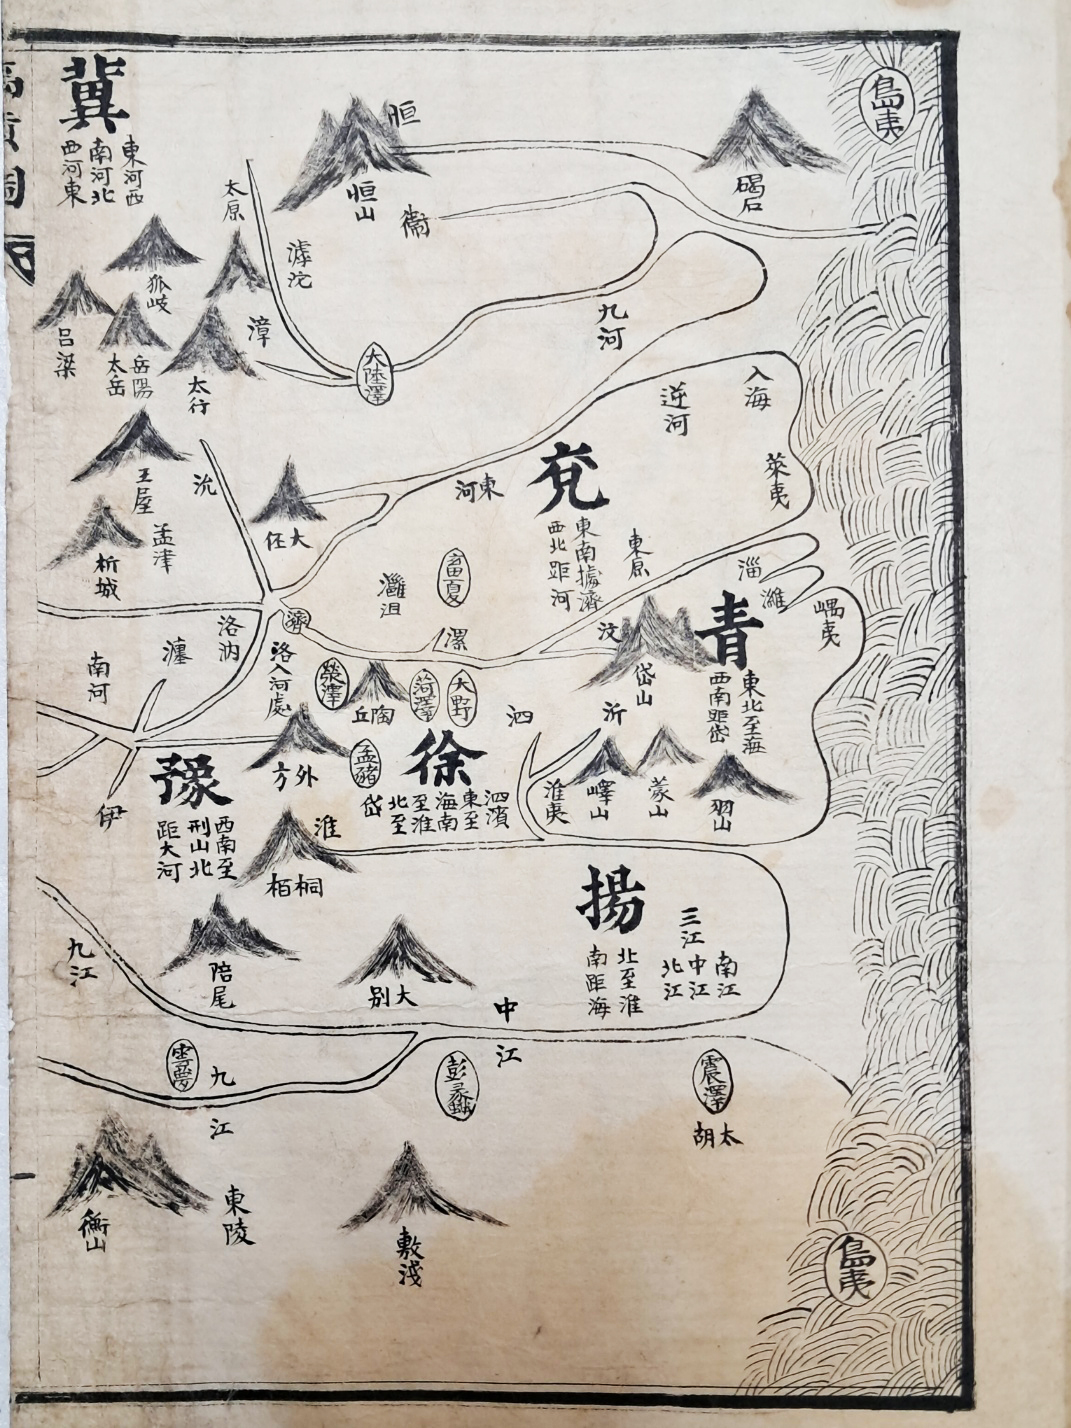 島夷
碣石
恒
恒山
衞
冀
東河西
南河北
西河東
太原
滹沱
狐岐
呂梁
岳陽
太岳
漳
太行
大陸澤
九河
逆河
入海
萊夷
王屋
沇
析城
孟津
大伾
東河
兗
東南據濟
西北距河
東原
雷夏
灉沮
漯
濟
汶
淄
濰
嵎夷
青
東北至海
西南距岱
岱山
洛汭
瀍
南河
洛入河處
滎澤
陶丘
菏澤
大野
泗
沂
嶧山
蒙山
羽山
淮夷
外方
孟豬
徐
泗濱
東至海南至淮北至岱
豫
西南至
刑山北
距大河
伊
淮
桐栢
揚
北至淮
南距海
三江
南江
中江
北江
九江
陪尾
大別
中江
雲夢
九江
彭蠡
震澤
太胡
衡山
東陵
敷淺
島夷